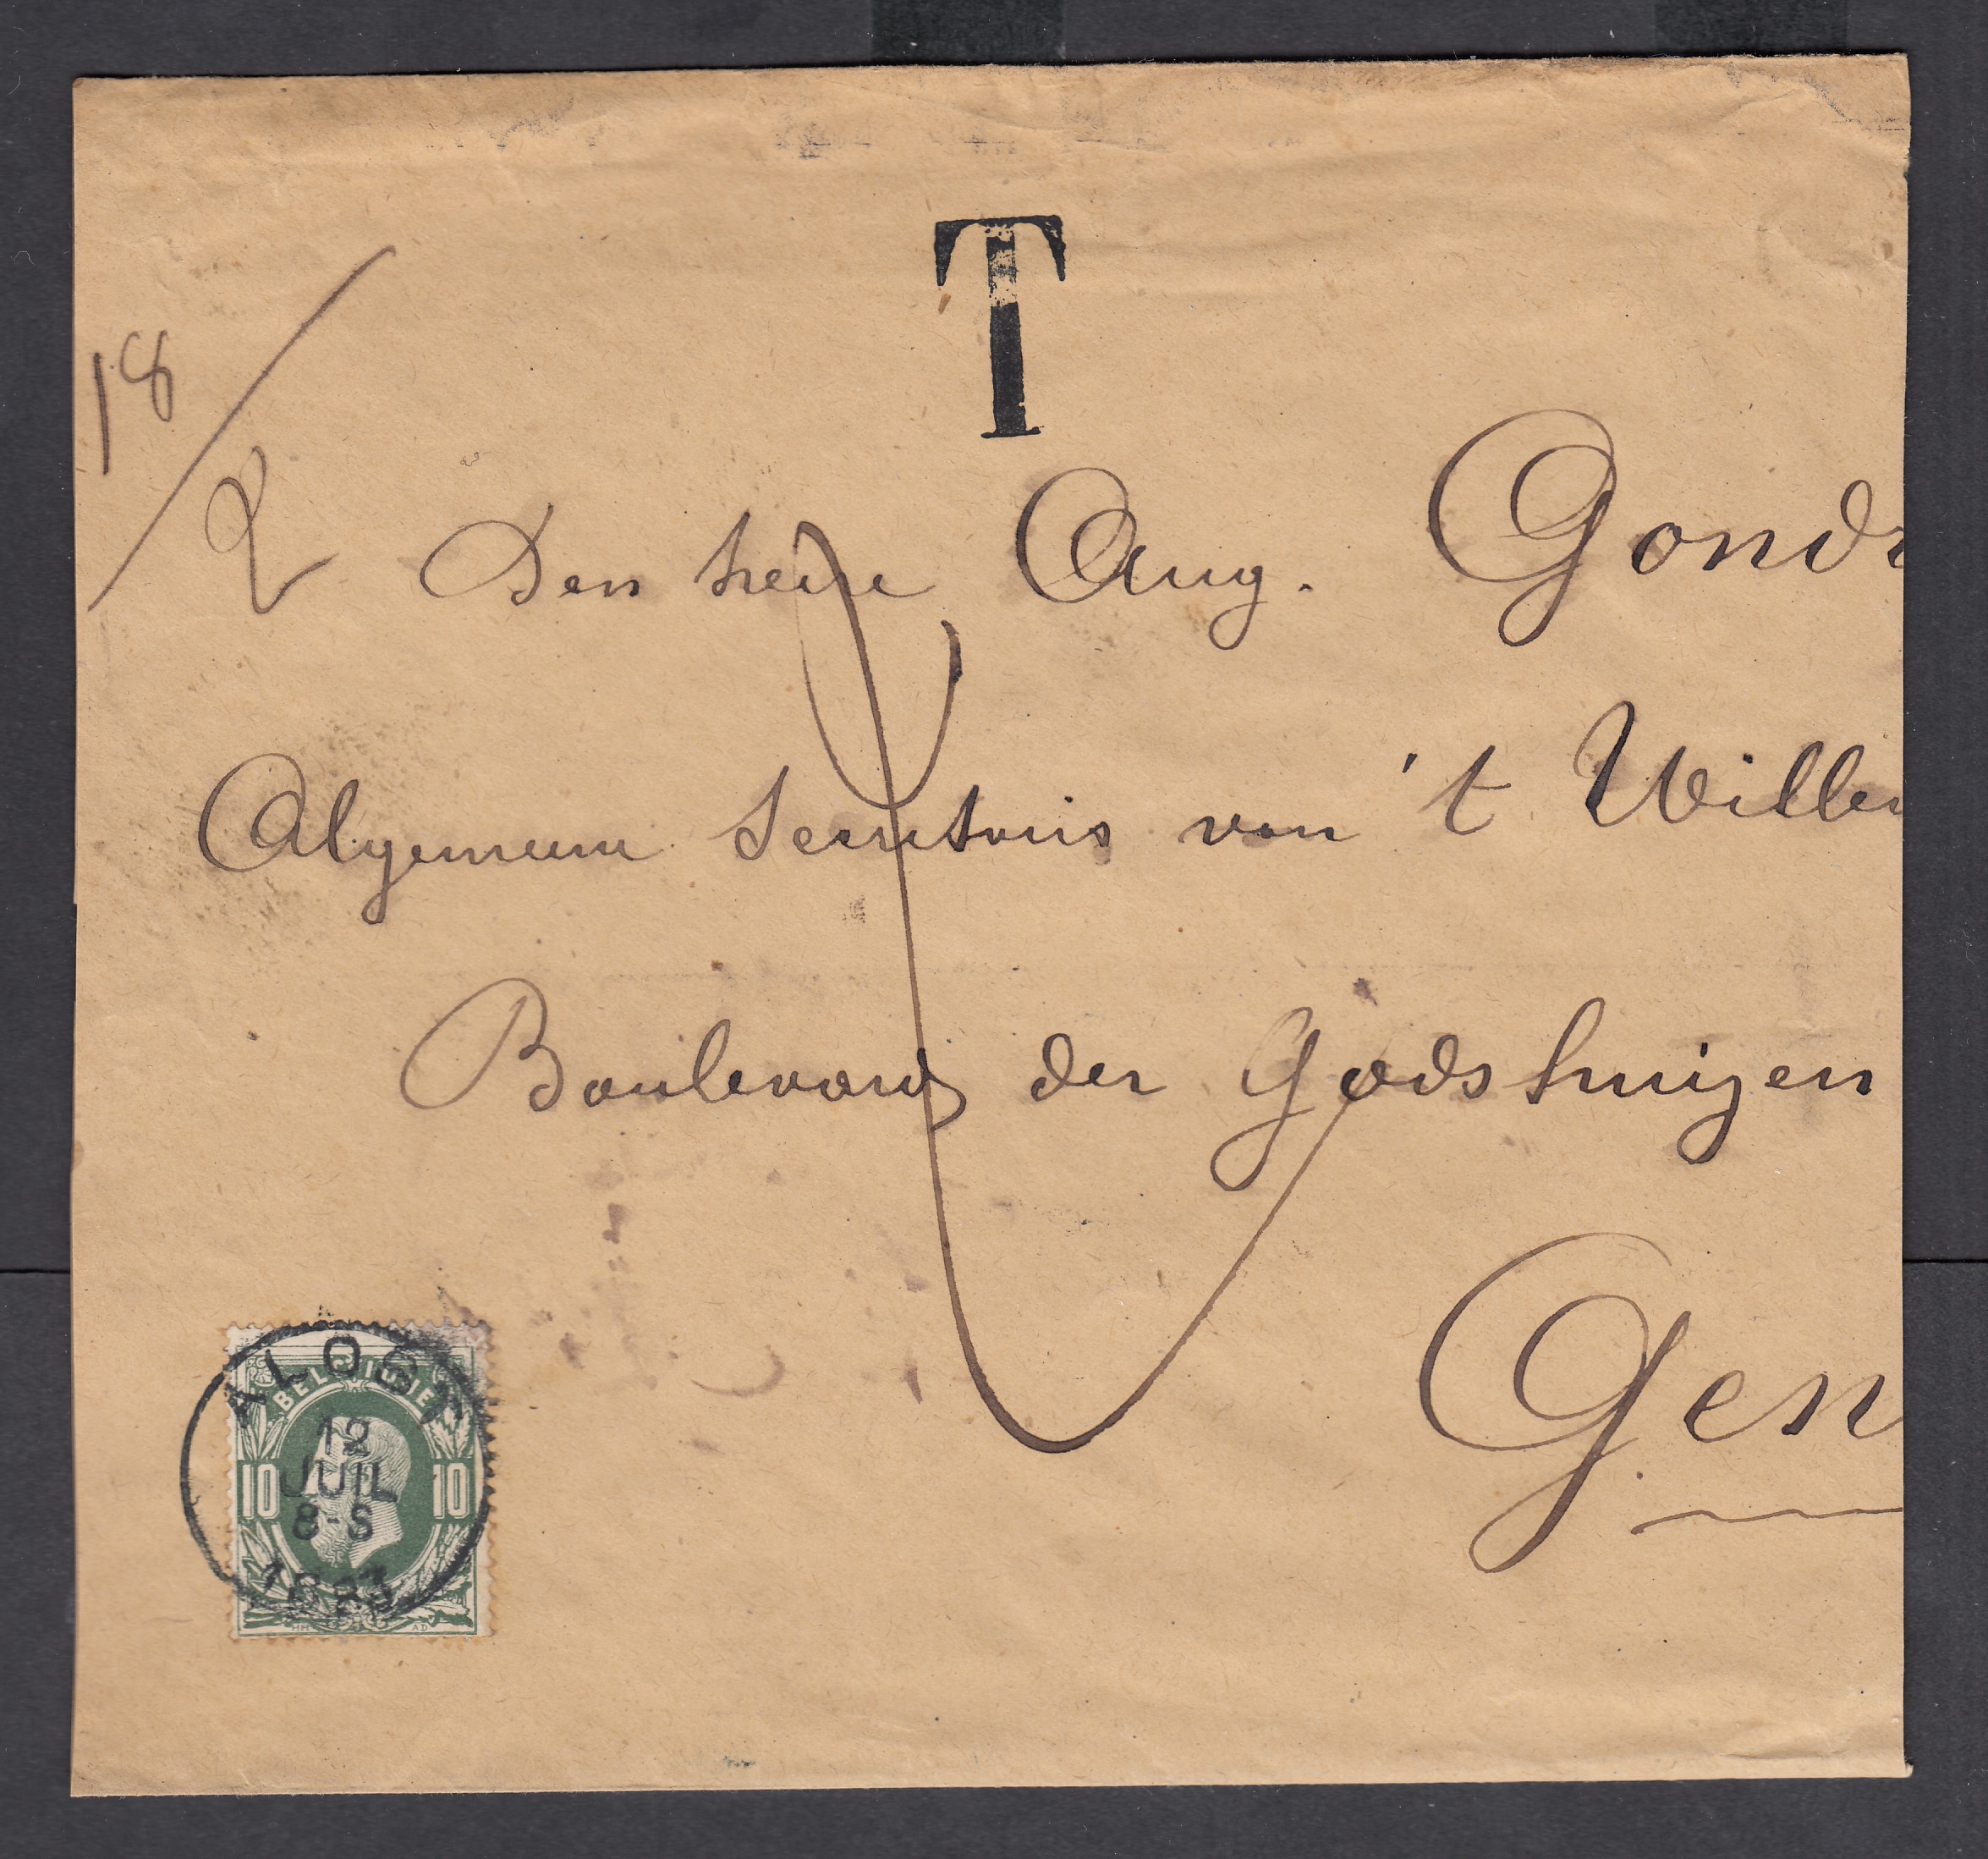 T
18
2
Den heere Aug. Gondr
Algemeene Secretaris van 't Willem
Boulevard der Godshuizen
Gen
ALOST
BELGIQUE
12
JUIL
10 10
8-S
1883